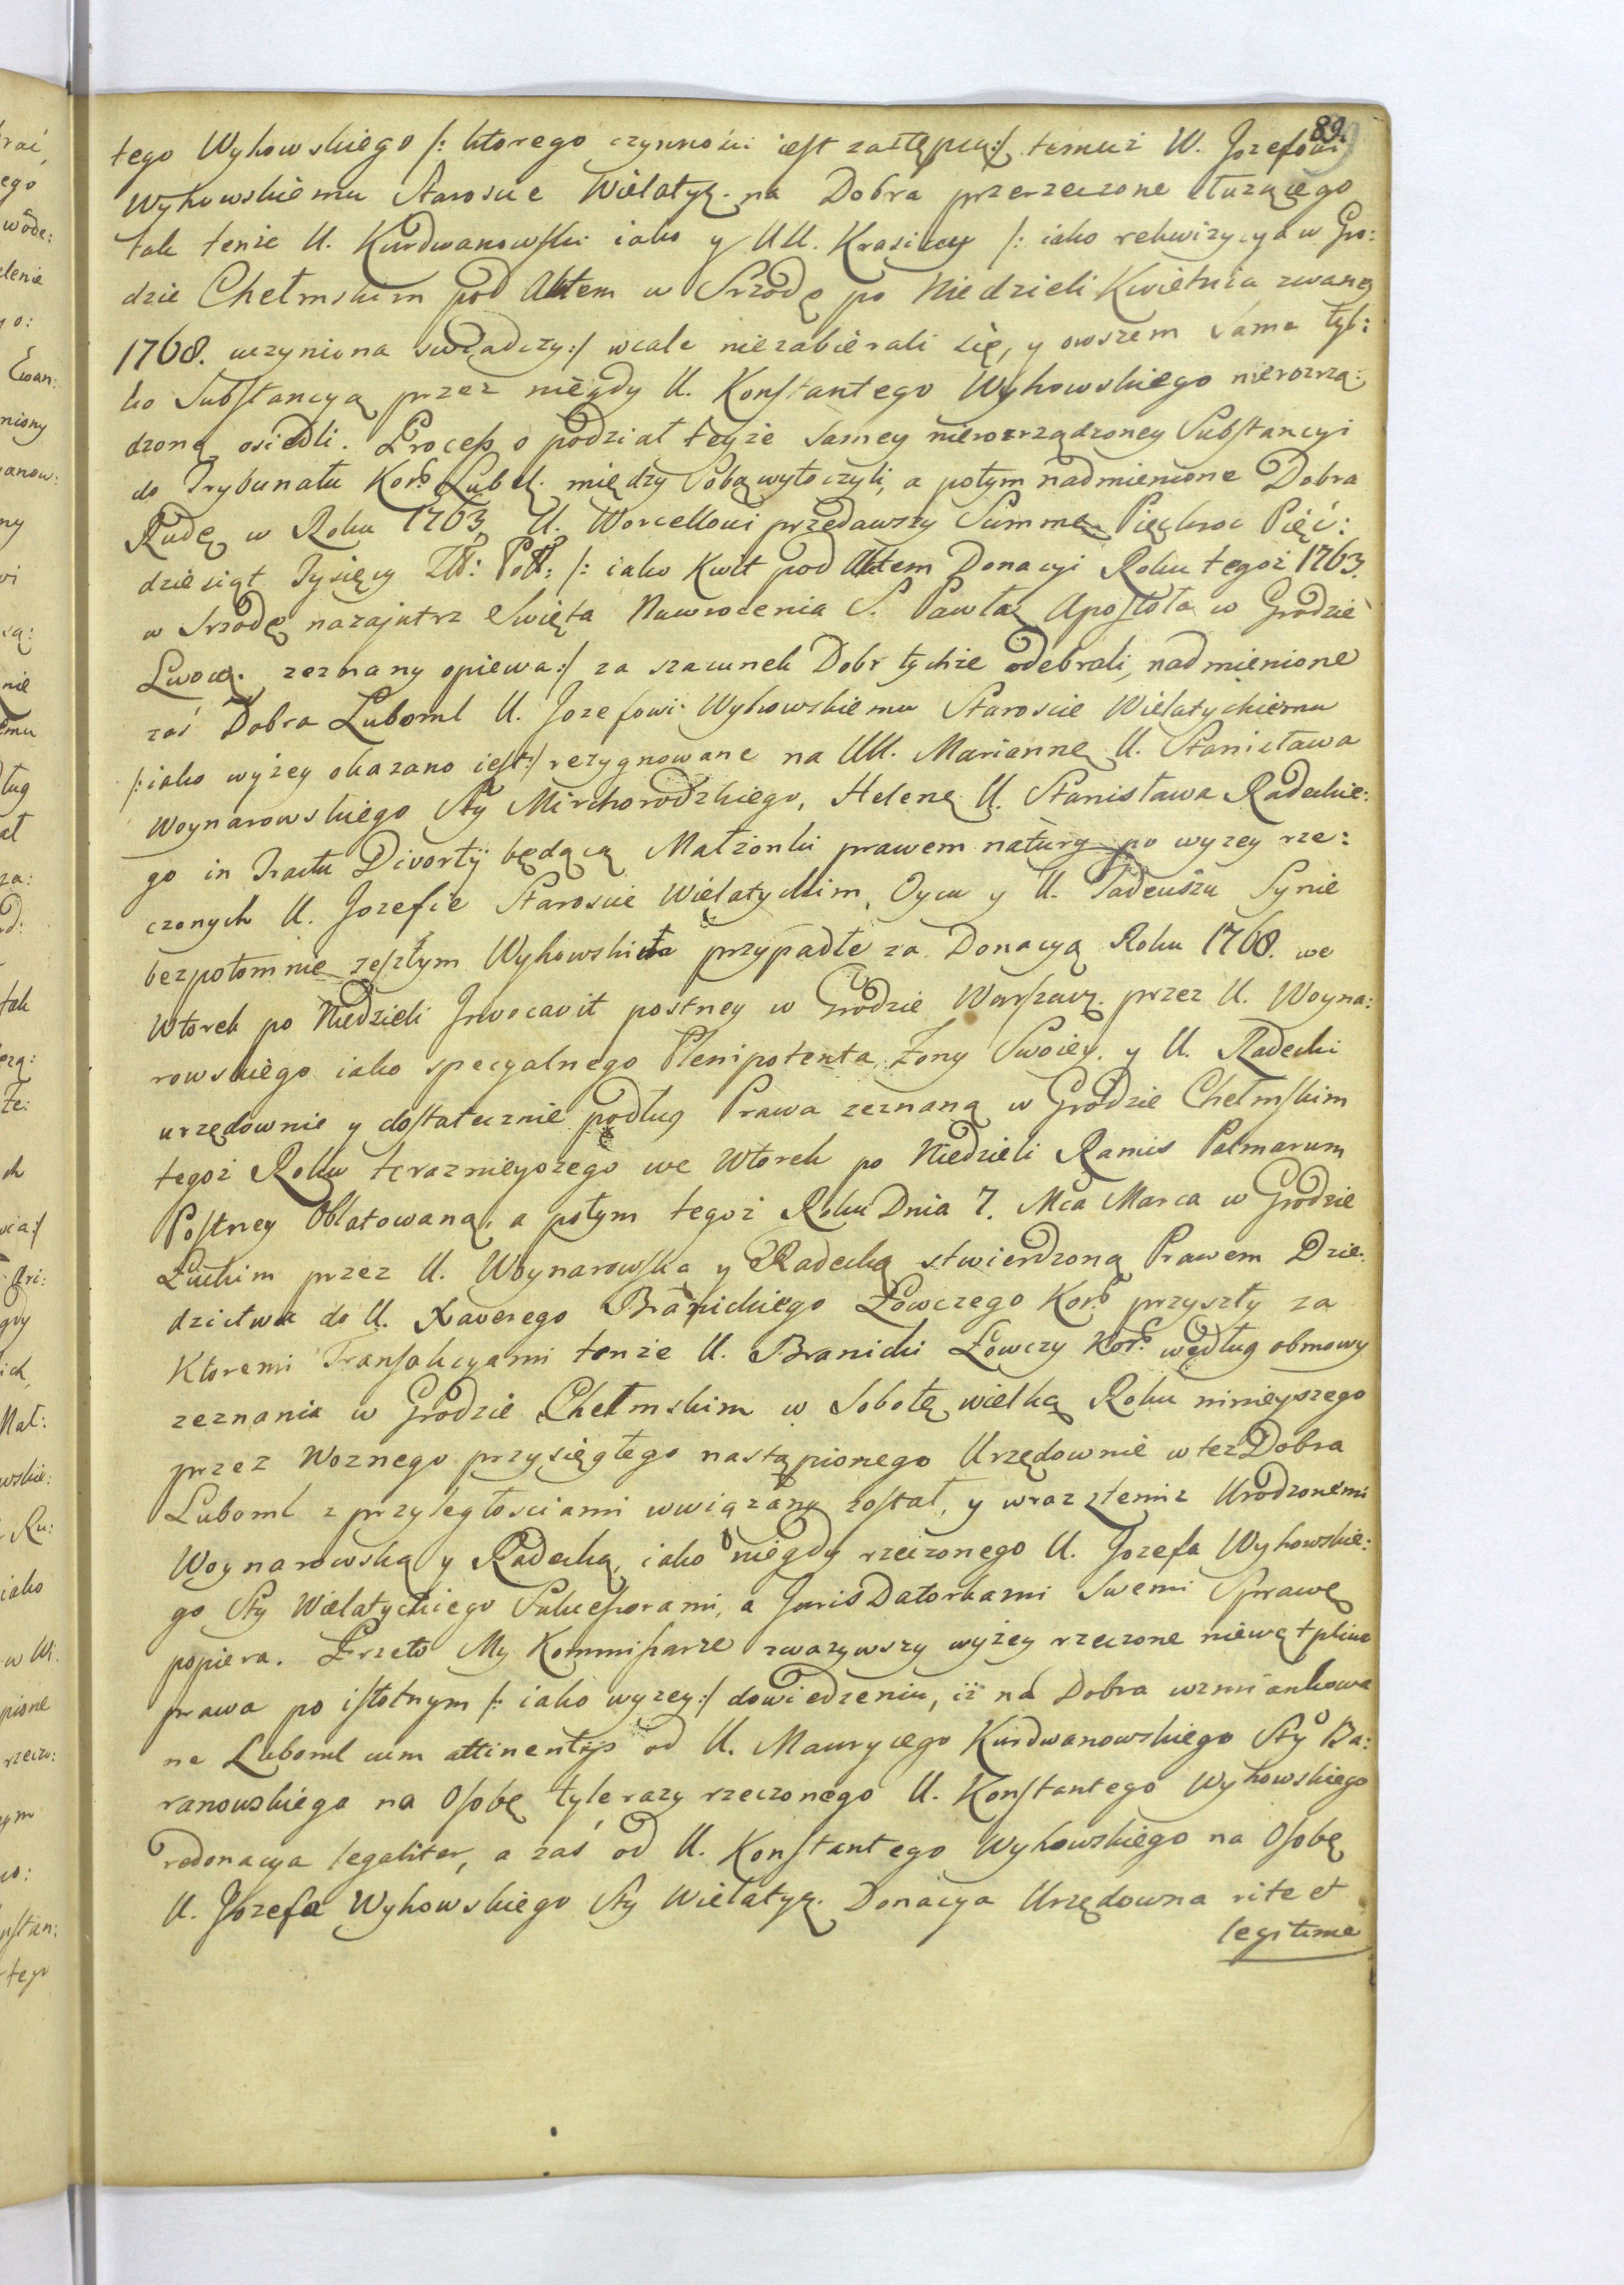 89.
tego Wyhowskiego /: ktorego czynności iest zastępcą :/ temuż W. Jozefowi
Wyhowskiemu Staroscie Wielatyc. na Dobra przerzeczone służącego
tak tenże U. Kurdwanowski iako y UU. Krasiccy /: iako rekwizycya w Gro:
dzie Chełmskim pod Aktem w Srzodę po Niedzieli Kwietnia zwaney
1768. uczyniona swiadczy :/ wcale niezabierali się, y owszem Sama tyl:
ko Substancyą przez niegdy U. Konstantego Wyhowskiego nierozrzą:
dzoną osiedli. Process o podział teyże samey nierozrządzoney Substancyi
do Trybunału Kor. Lubel. między Sobą wytoczyli, a potym nadmienione Dobra
Rudę w Roku 1763 U. Worcellowi przedawszy Summę Pięckroć Pięć:
dziesiąt Tysięcy Zł: Pol: /: iako Kwit pod Aktem Donacyi Roku tegoż 1763.
w Srzodę nazajutrz Swięta Nawrocenia S. Pawła Apostoła w Grodzie
Lwow. zeznany opiewa :/ za szacunek Dobr tychże odebrali, nadmienione
zaś Dobra Luboml U. Jozefowi Wyhowskiemu Staroscie Wielatyckiemu
/: iako wyżey okazano iest :/ rezygnowane na UU. Mariannę U. Stanisława
Woynarowskiego Sty Mirchorodzkiego, Helenę U. Stanisława Radeckie:
go in Tractu Divortÿ będącą Małżonki prawem natury po wyzey rze:
czonych U. Jozefie Staroscie Wielatyckim, Oycu y U. Tadeuszu Synie
bezpotomnie zeszłym Wyhowskich przypadłe za Donacyą Roku 1768. we
Wtorek po Niedzieli Invocavit postney w Grodzie Warszaw. przez U. Woyna:
rowskiego iako specyalnego Plenipotenta Żony Swoiey. y U. Radecki
urzędownie y dostatecznie podług Prawa zeznaną w Grodzie Chełmskim
tegoż Roku teraznieyszego we Wtorek po Niedzieli Ramis Palmarum
Postney Oblatowaną, a potym tegoż Roku Dnia 7. Mca Marca w Grodzie
Łuckim przez U. Woynarowska y Radecką stwierdzoną Prawem Dzie:
dzictwa do U. Xaverego Branickiego Łowczego Kor. przyszły za
Ktoremi Transakcyami tenże U. Branicki Łowczy Kor. według obmowy
zeznania w Grodzie Chełmskim w Sobotę wielką Roku ninieyszego
przez Woznego przysięgłego nastąpionego Urzędownie w też Dobra
Luboml z przyległosciami wwiązany został, y wraz z temiz Urodzonemi
Woynarowską y Radecką iako niegdy rzeczonego U. Jozefa Wyhowskie:
go Sty Wielatyckiego Sukcessorami, a Juris Datorkami Swemi Sprawę
popiera. Przeto My Kommissarze zwazywszy wyżey rzeczone niewątpliwe
prawa po istotnym /: iako wyzey :/ dowiedzeniu, iż na Dobra wzmiankowa
ne Luboml cum attinentijs od U. Maurycego Kurdwanowskiego Sty Ba:
ranowskiego na Osobę tyle razy rzeczonego U. Konstantego Wyhowskiego
redonacya legaliter, a zaś od U. Konstantego Wyhowskiego na Osobę
U. Jozefa Wyhowskiego Sty Wielatyc. Donacya Urzędowna rite et
legitime